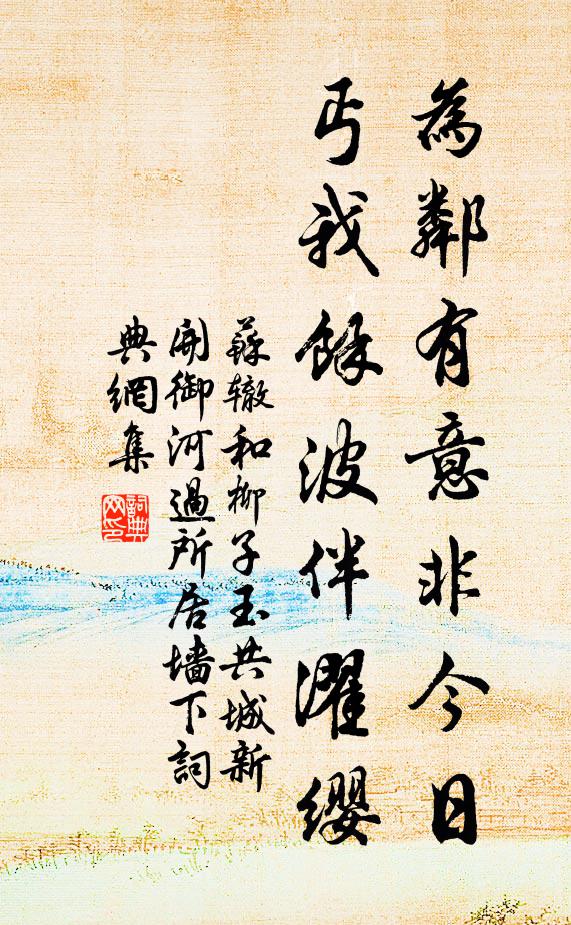 為鄰有意非今日
丐我餘波伴濯纓
蘇辙和柳子玉共城新
開御河過所居墙下詞
典網集
詞典
网印